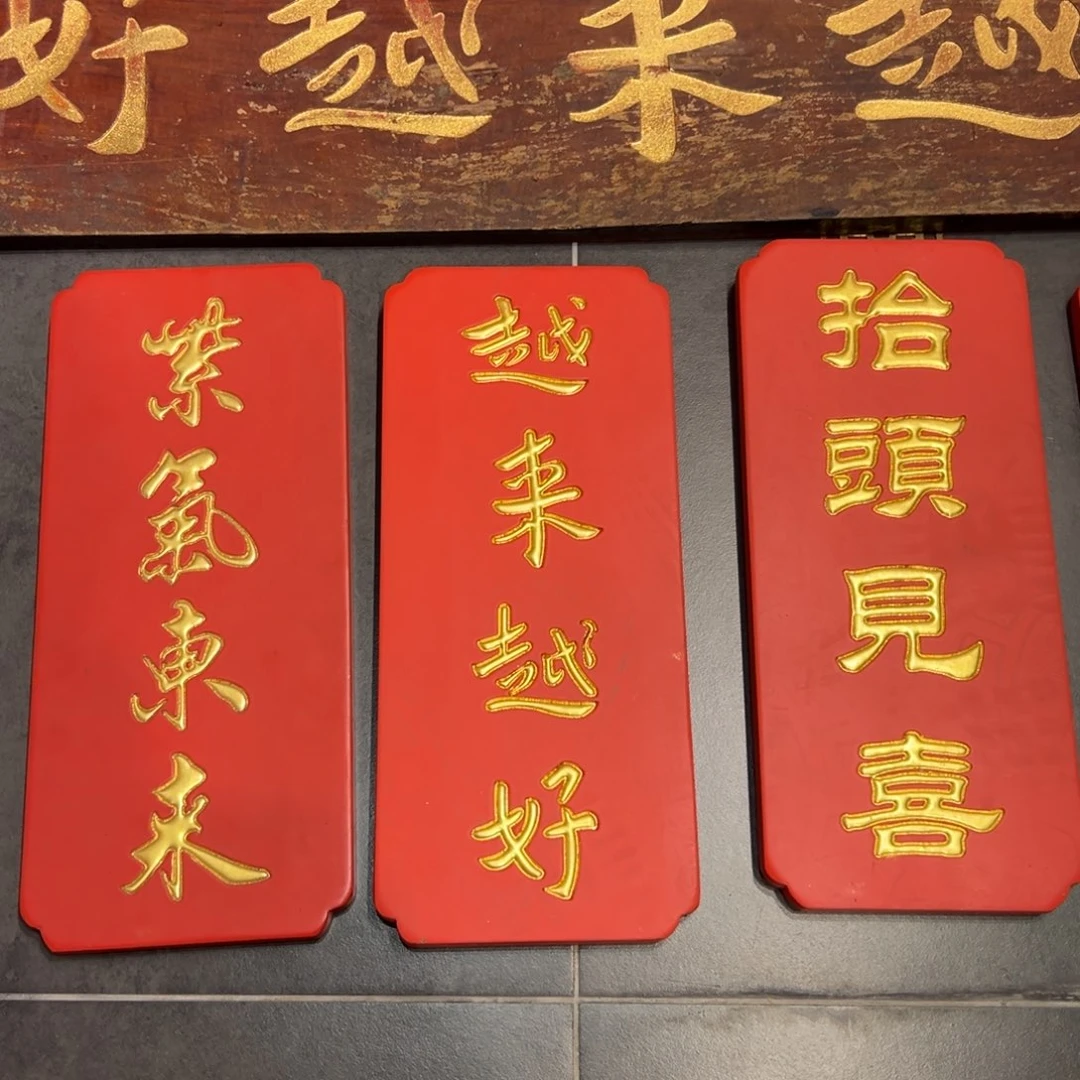 越来越好
紫氣東来
越来越好
拾頭見喜